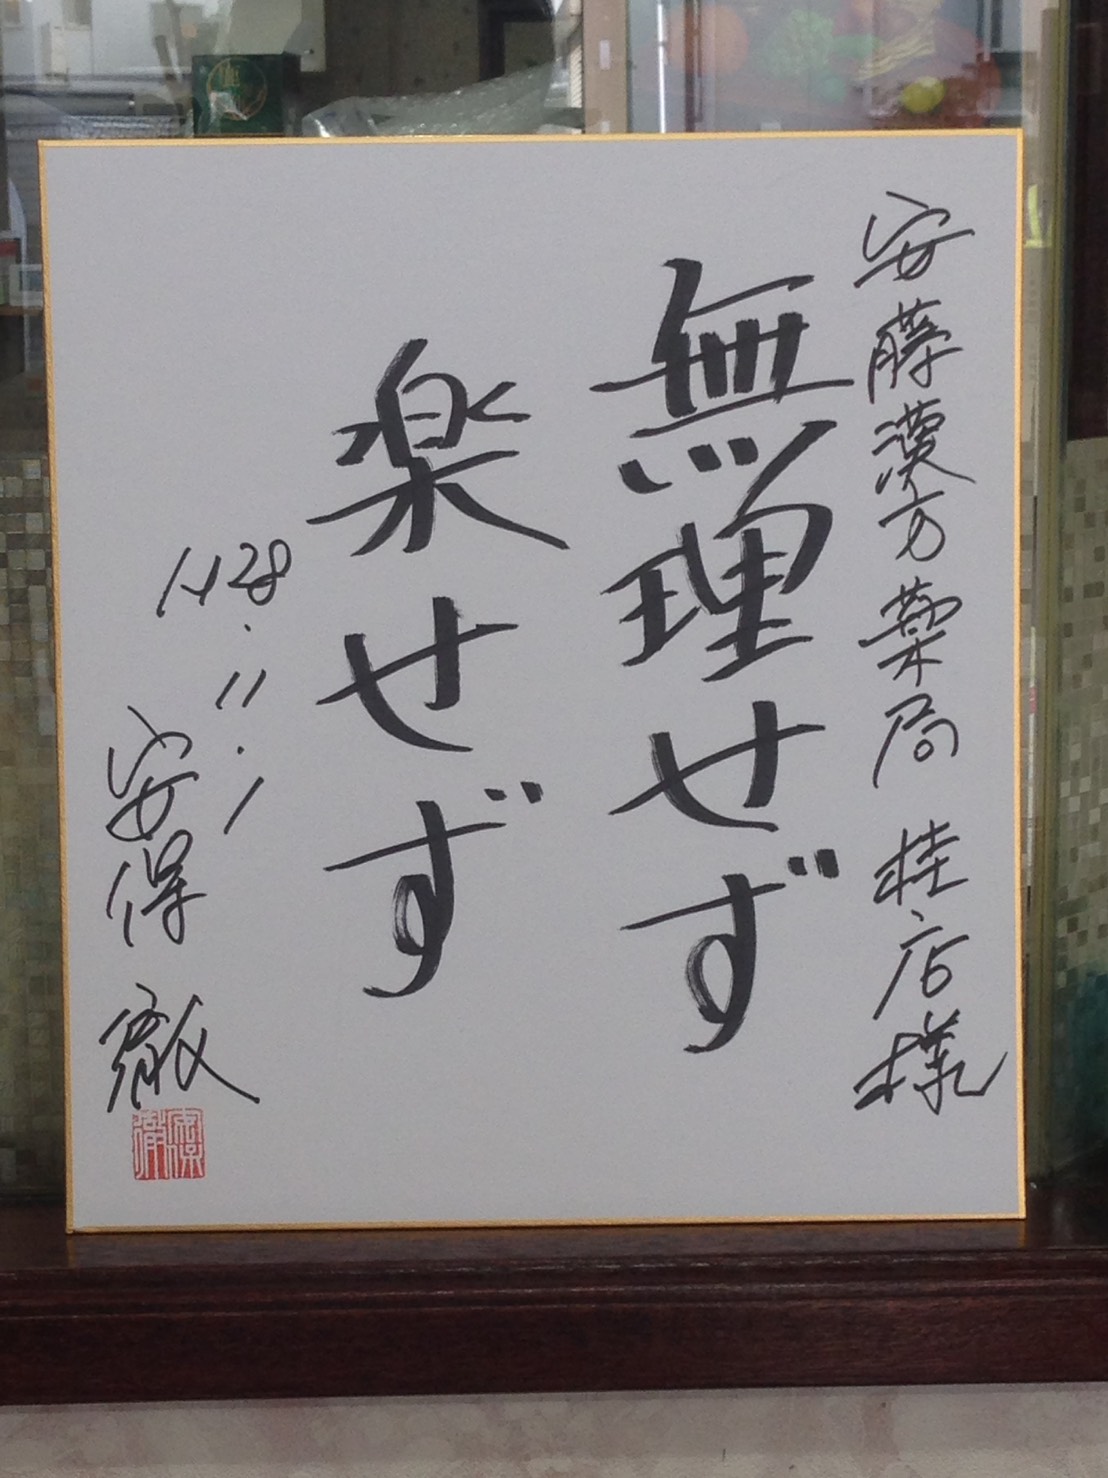 安藤漢方薬局 桂店様
無理せず
楽せず
H28.11.1
安保 徹